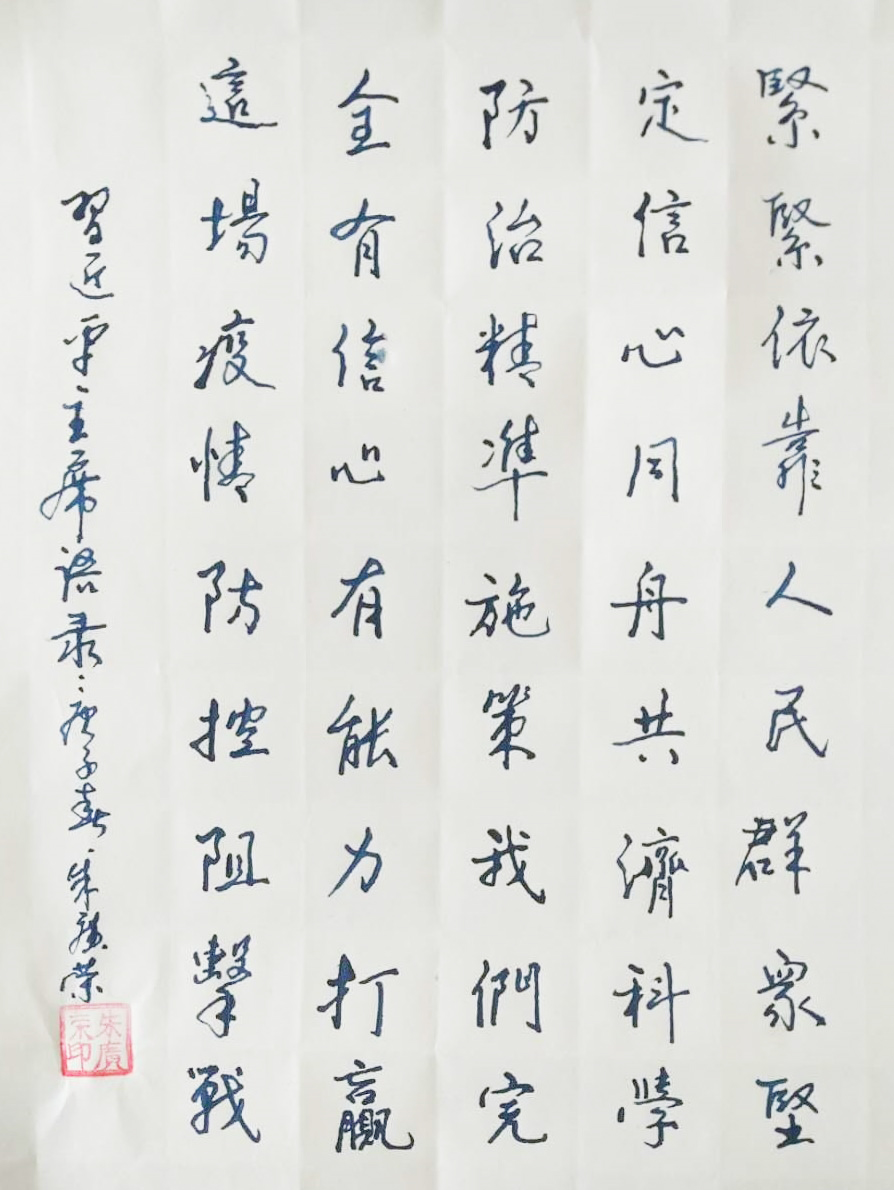 緊緊依靠人民群眾堅
定信心同舟共濟科學
防治精準施策我們完
全有信心有能力打贏
這場疫情防控阻擊戰
習近平主席語录庚子春朱廣荣
朱廣
荣印